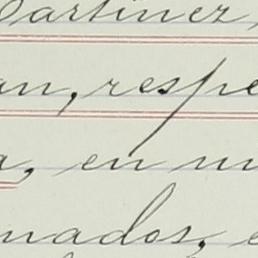 Martinez
an, respe
a, en m
nados, e